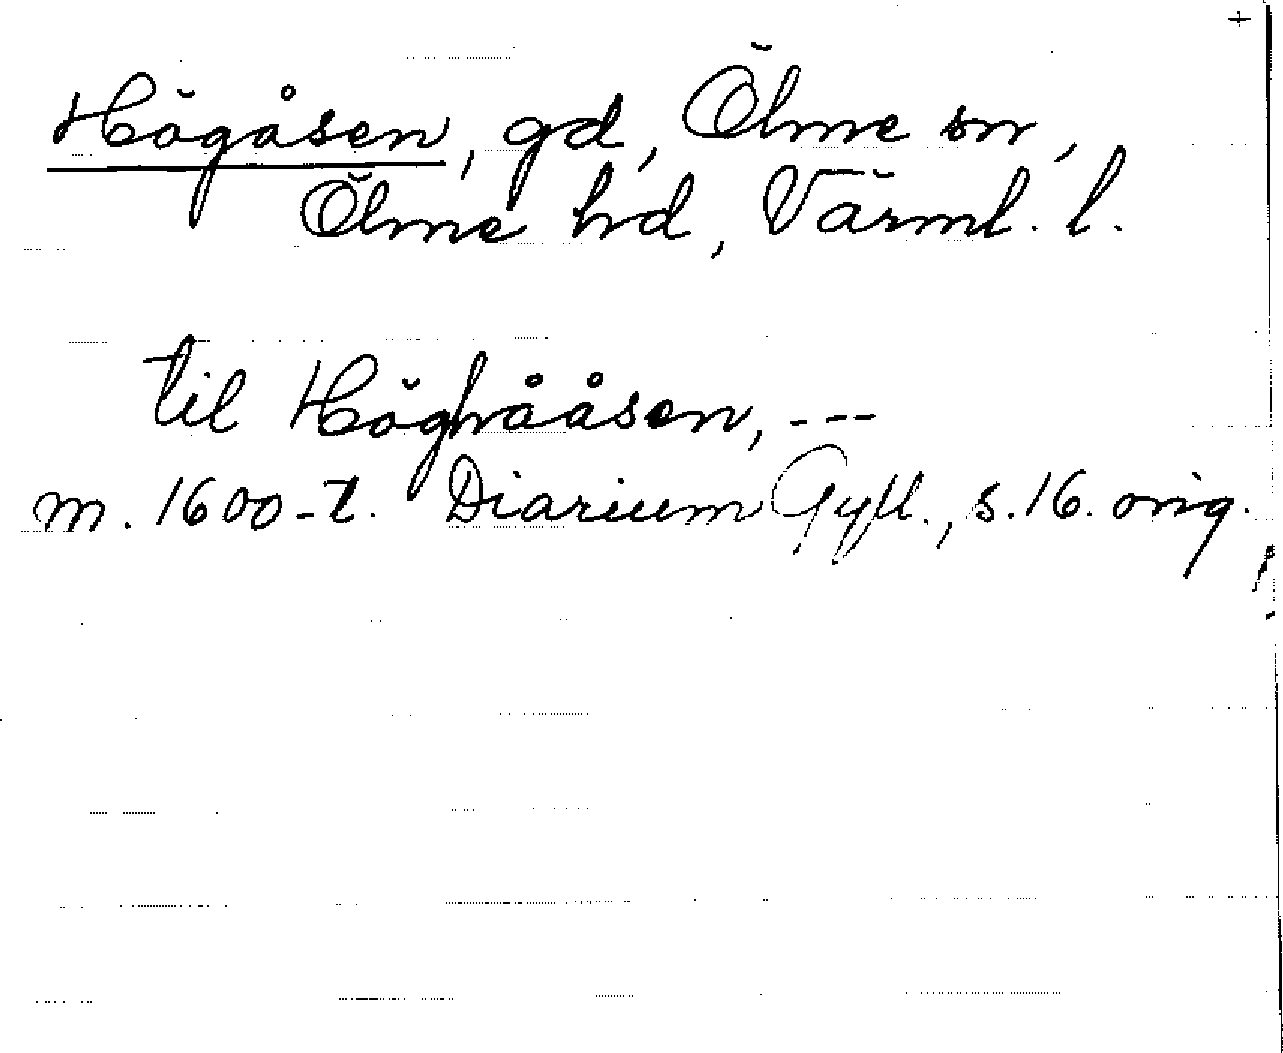 +
Högåsen, gd, Ölme sn,
Ölme hd, Värml. l.
til Höghååsen, ---
m. 1600-t. Diarium Gyll., s. 16. orig.